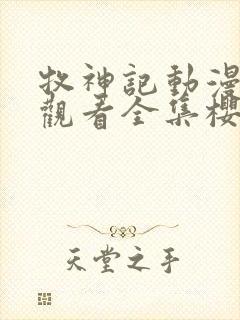 牧神記動漫
觀看全集櫻
天堂之手